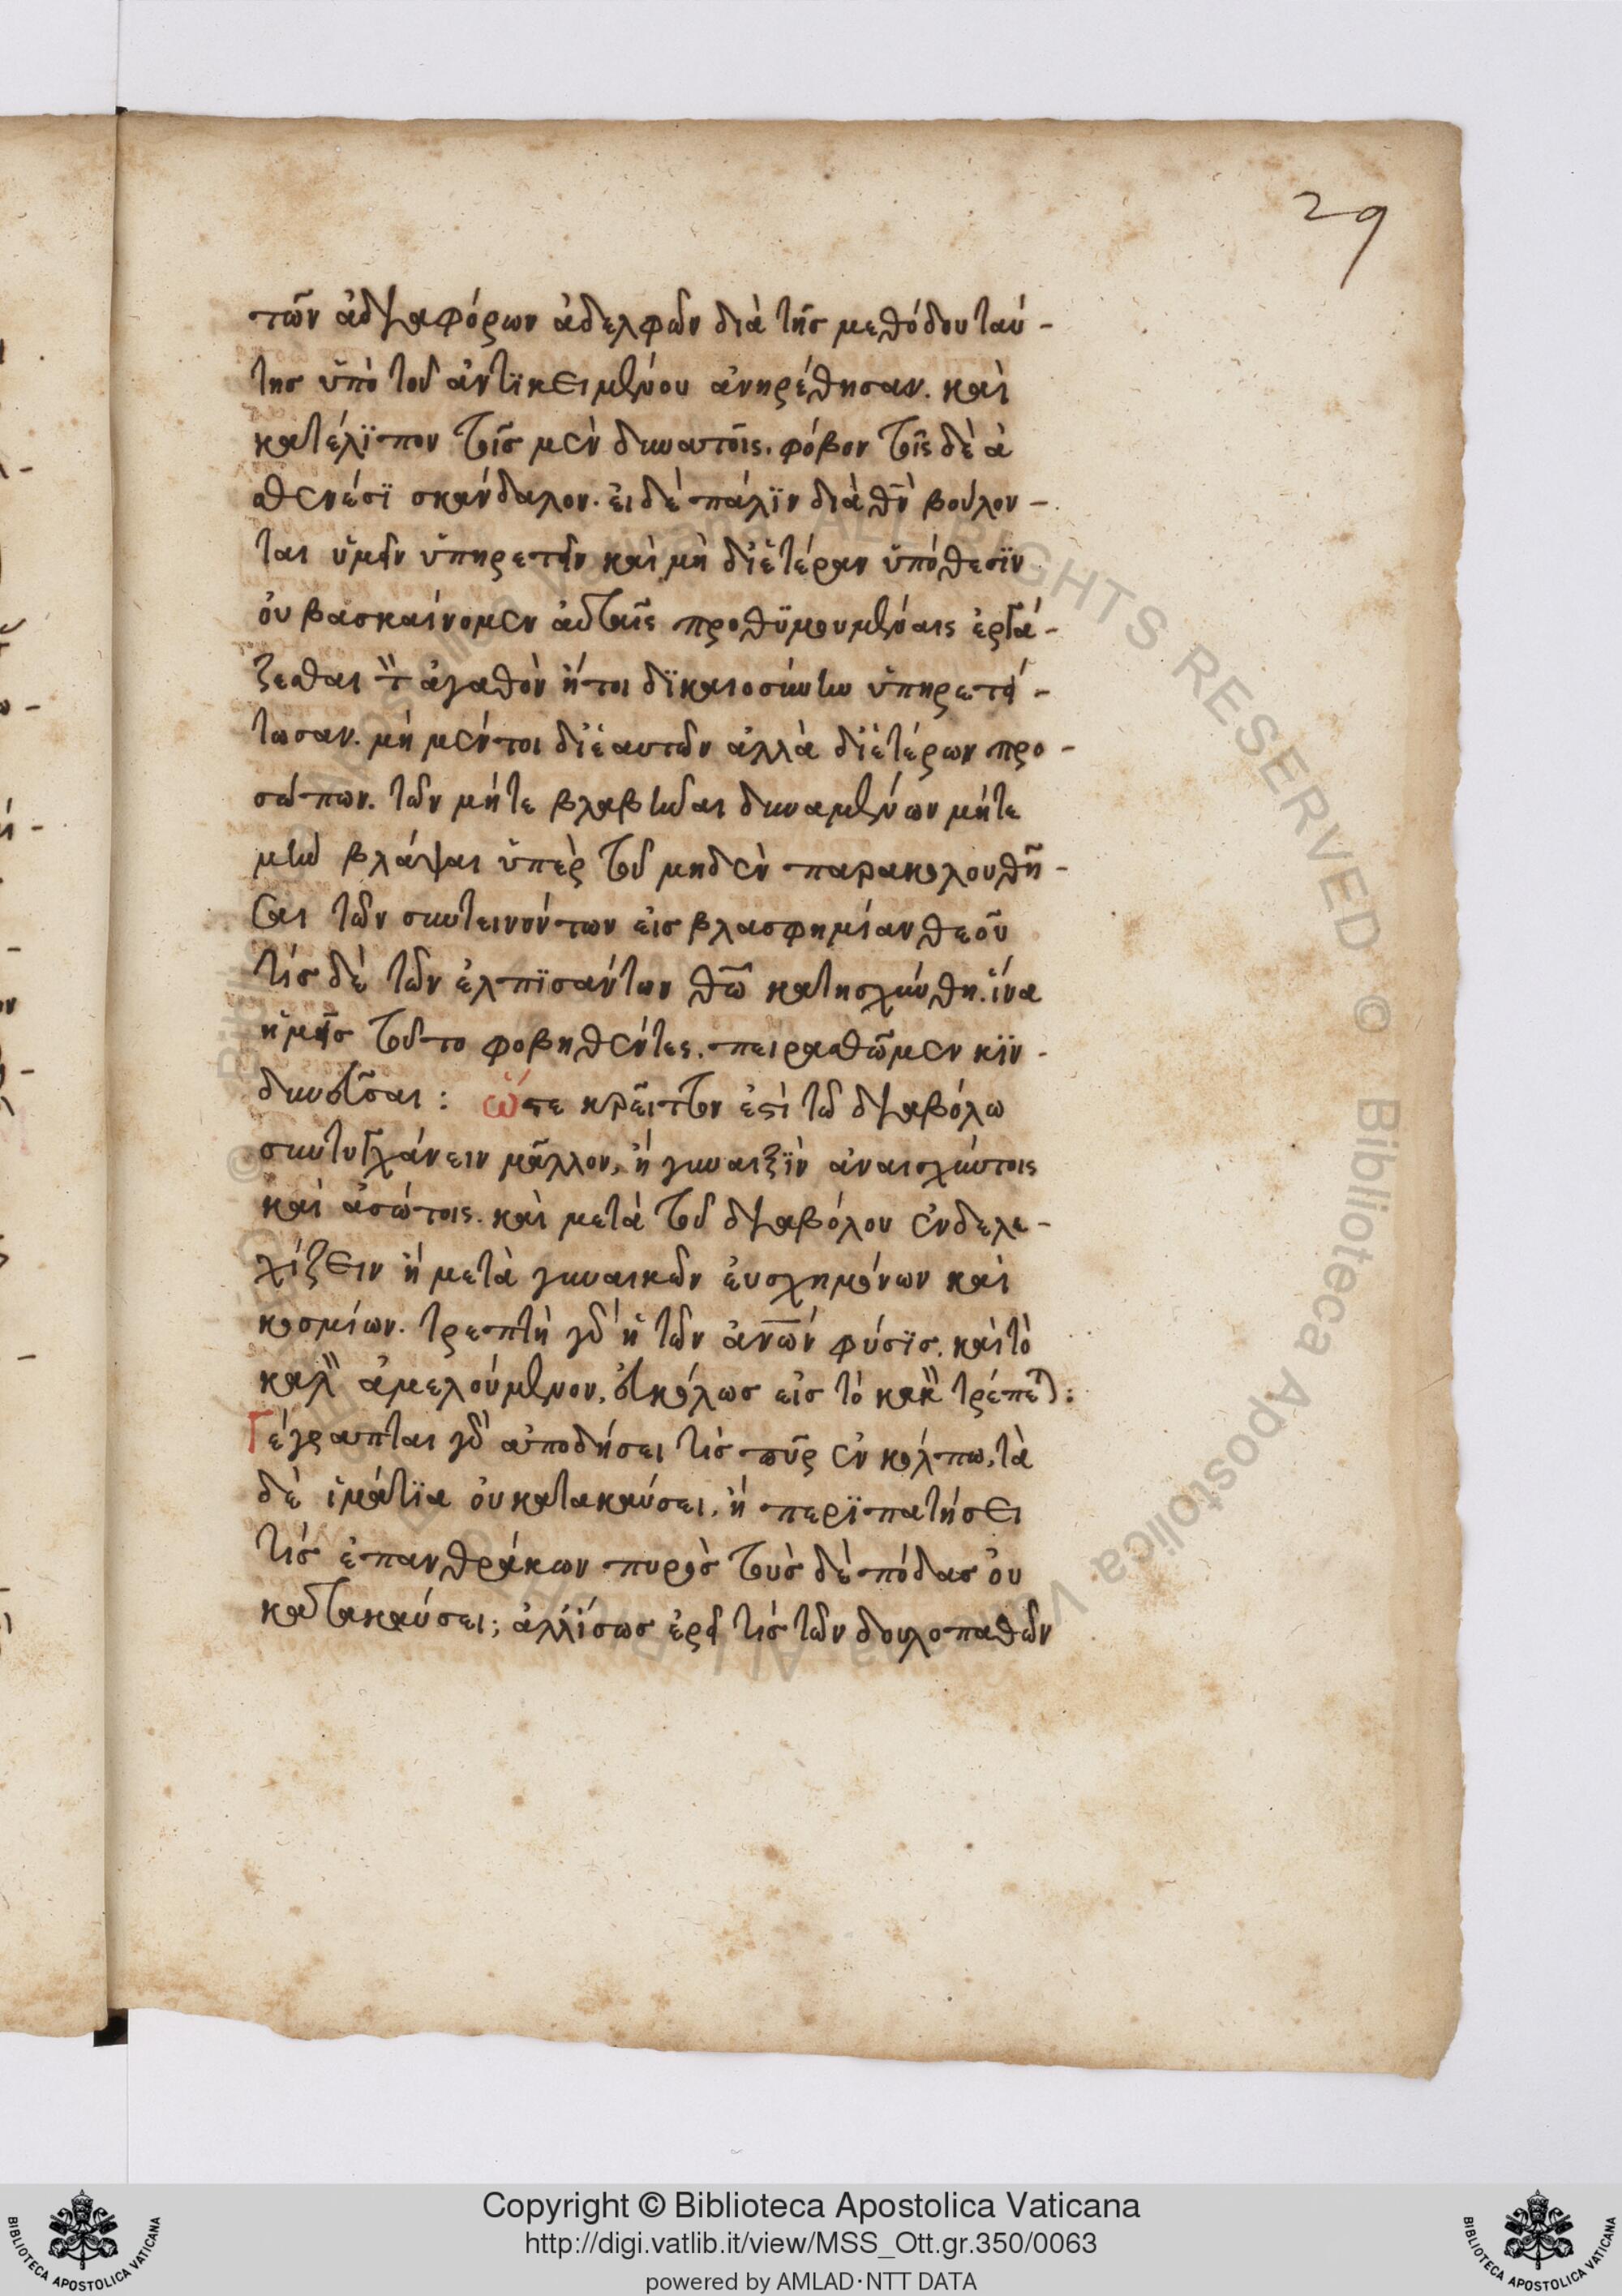 29
τῶν ἀδιαφόρων ἀδελφῶν διὰ τῆς μεθόδου ταύ-
της ὑπὸ τοῦ ἀντϊκειμένου ἀνηρέθησαν. καὶ
κατέλϊπον τοῖς μὲν δυνατοῖς. φόβον τοῖς δὲ ἀ
σθενέσϊ σκάνδαλον. εἰ δὲ πάλϊν διὰ θν̄ βούλον-
ται ὑμῖν ὑπηρετεῖν καὶ μὴ δι' ἑτέραν ὑπόθεσϊν
οὐ βασκαίνομεν αὐταῖς προθϋμουμέναις ἐργά-
ζεσθαι τὸ ἀγαθὸν ἤτοι δϊκαιοσύνην ὑπηρετεί-
τωσαν. μὴ μέντοι δι' ἑαυτῶν ἀλλὰ δι' ἑτέρων προ-
σώπων. τῶν μήτε βλαβῆναι δυναμένων μήτε
μὴν βλάψαι ὑπὲρ τοῦ μηδὲν παρακολουθῆ-
σαι τῶν συντεινόντων εἰς βλασφημίαν θεοῦ
τίς δὲ τῶν ἐλπϊσάντων θω̄ κατησχύνθη. ἵνα
ἡμεῖς τοῦτο φοβηθέντες. πειραθῶμεν κϊν-
δυνεῦσαι: ὥστε κρεῖττον ἐστὶ τῶ διαβόλω
συντυγχάνειν μᾶλλον, ἢ γυναιξϊν ἀναισχύντοις
καὶ ἀσώτοις. καὶ μετὰ τοῦ διαβόλου ἐνδελε-
χίζειν ἢ μετὰ γυναικῶν ἐυσχημόνων καὶ
κοσμίων. τρεπτὴ γὰρ ἡ τῶν ἀνων̄ φύσϊς. καὶ τὸ
καλὸν ἀμελούμενον, εὐκόλως εἰς τὸ κακὸν τρέπεται:
Γέγραπται γὰρ ἀποδήσει τίς πῦρ ἐν κόλπω, τὰ
δὲ ἱμάτϊα οὐ κατακαύσει, ἢ περϊπατήσει
τίς ἐπανθράκων πυρὸς τοὺς δὲ πόδας οὐ
κατακαύσει; ἀλλ' ἴσως ἐρεῖ τίς τῶν δουλοπαθῶν
Copyright © Biblioteca Apostolica Vaticana
http://digi.vatlib.it/view/MSS_Ott.gr.350/0063
powered by AMLAD·NTT DATA